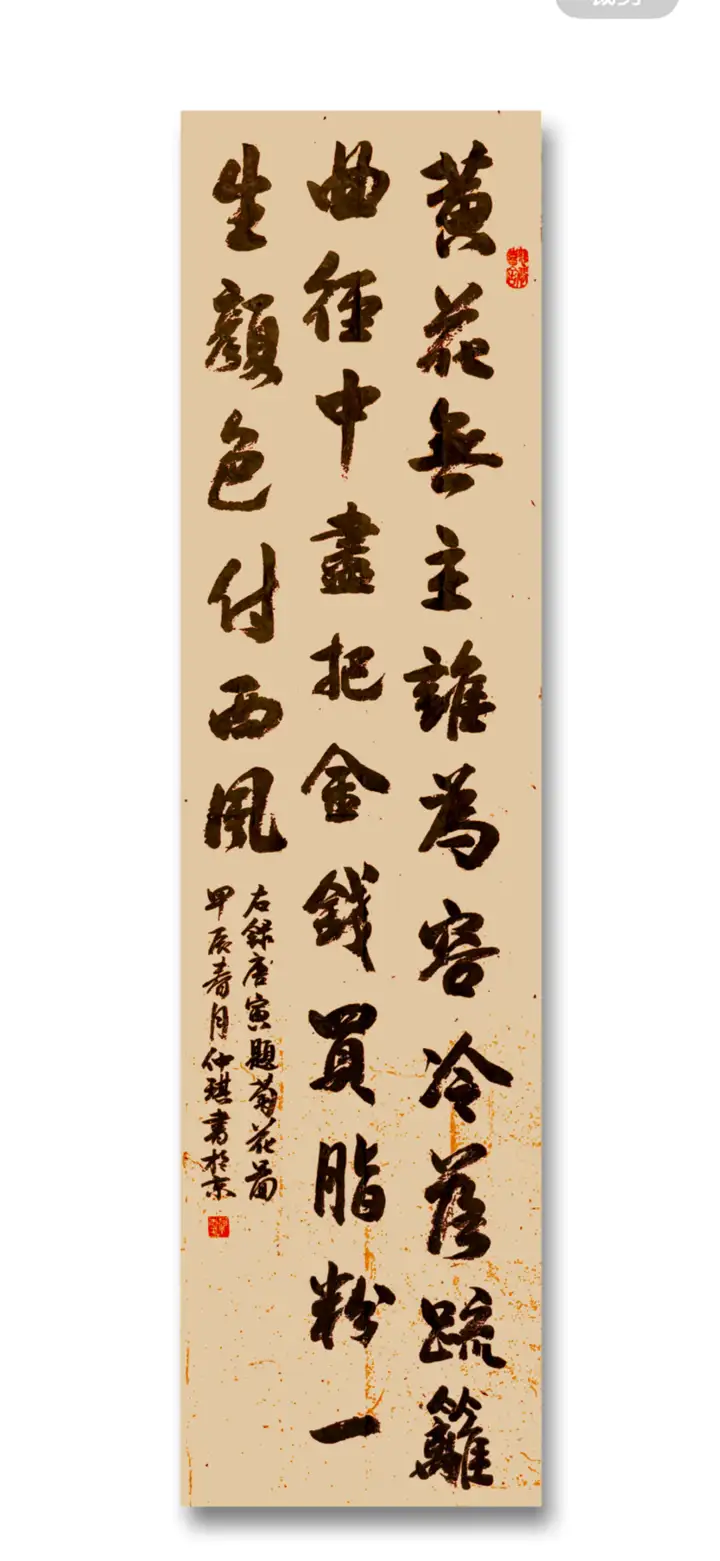 黄花無主誰為容冷落疏籬
曲徑中盡把金錢買脂粉一
生顏色付西風
右錄唐寅題菊花圖
甲辰春月仲琪書於京